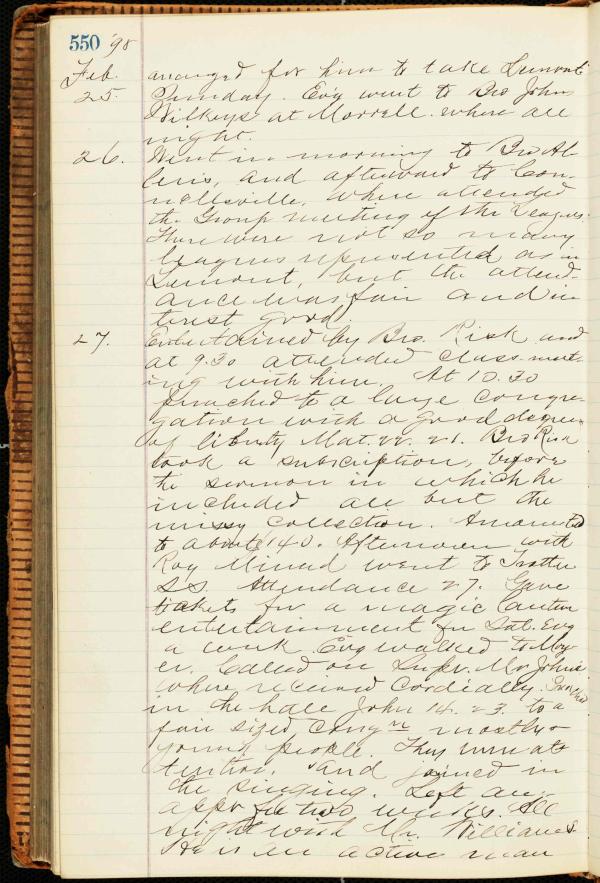 550 '98
Feb. arranged for him to take Lemont
25. Sunday. Ev'g went to Bro John
Wilkeys at Morrell. where all
night.
26. Went in morning to Bro Al
len's, and afterward to Con-
nellsville, where attended
the Group meeting of the Leagues.
There were not so many
leagues represented as in
Lemont, but the attend-
ance was fair and in
terest good.
27. Entertained by Bro. Risk and
at 9.30 attended class-meet-
ing with him. At 10.30
preached to a large congre-
gation with a good degree
of liberty Mat. 22. 21. Bro Risk
took a subscription, before
the sermon in which he
included all but the
missy collection. Amounted
to about 140. Afternoon with
Roy Minerd went to Trotter
S.S. Attendance 27. Gave
tickets for a magic lantern
entertainment for Sat. Evg
a week. Evg walked to Moy-
er. Called on Supr. Mr Johns
where received cordially. Preached
in the hall John 14. 23. to a
fair sized congn mostly
young people. They were at-
tentive, and joined in
the singing. Left an
appr for two weeks. All
night with Mr. Williams.
He is an active man